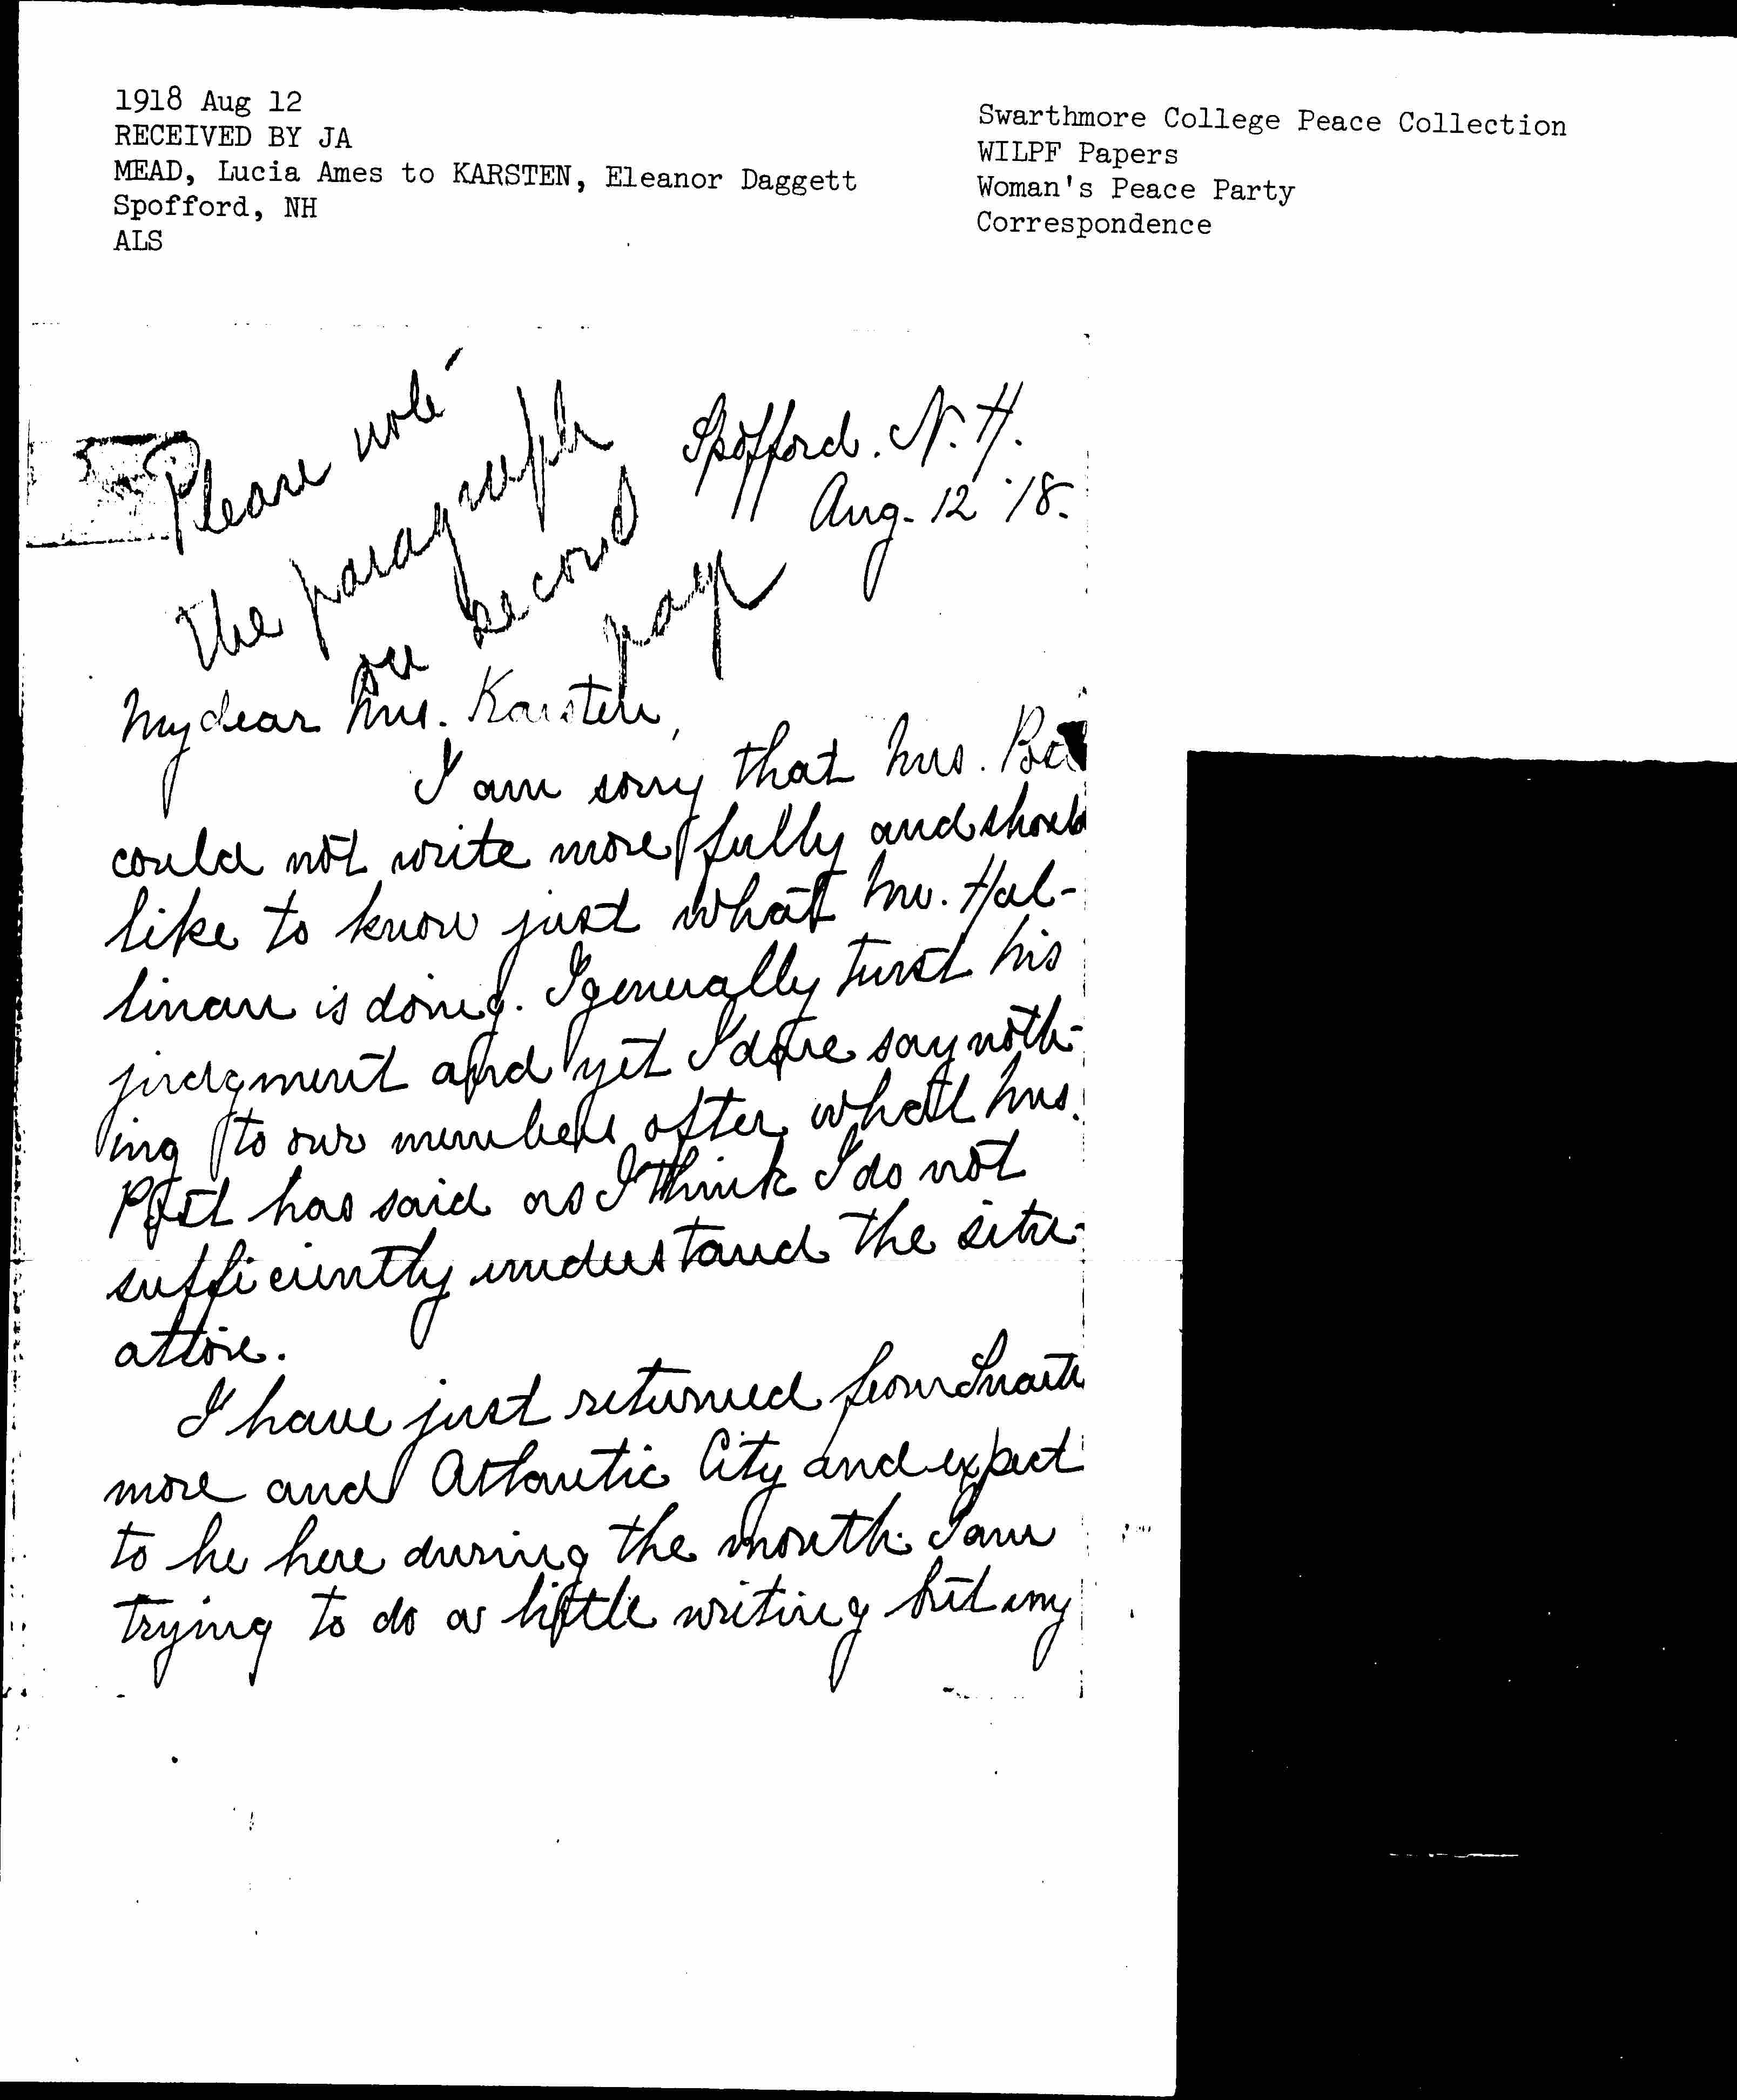 1918 Aug 12
RECEIVED BY JA
MEAD, Lucia Ames to KARSTEN, Eleanor Daggett
Spofford, NH
ALS
Swarthmore College Peace Collection
WILPF Papers
Woman's Peace Party
Correspondence
Please note
the paragraph
on second
page
Spofford. N.H.
Aug. 12 '18.
My dear Mrs. Karsten,
I am sorry that Mrs.
could not write more fully and should
like to know just what Mr. Hal-
linan is doing. I generally turst his
judgment and yet I dare say noth-
ing to our members after what Mrs.
Post has said as I think I do not
sufficiently understand the situ-
ation.
I have just returned from
more and Atlantic City and expect
to be here during the month. I am
trying to do a little writing but my